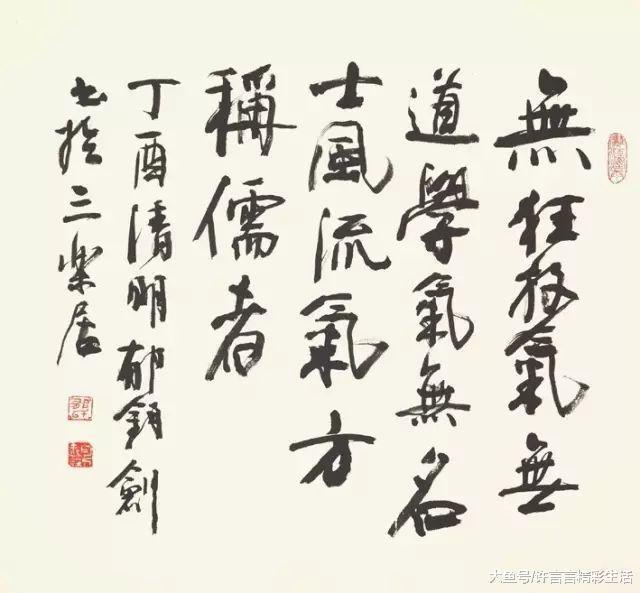 無狂放氣無
道學氣無名
士風流氣方
稱儒者
丁酉清明郁鈞劍
書於三樂居
大鱼号/许言言精彩生活